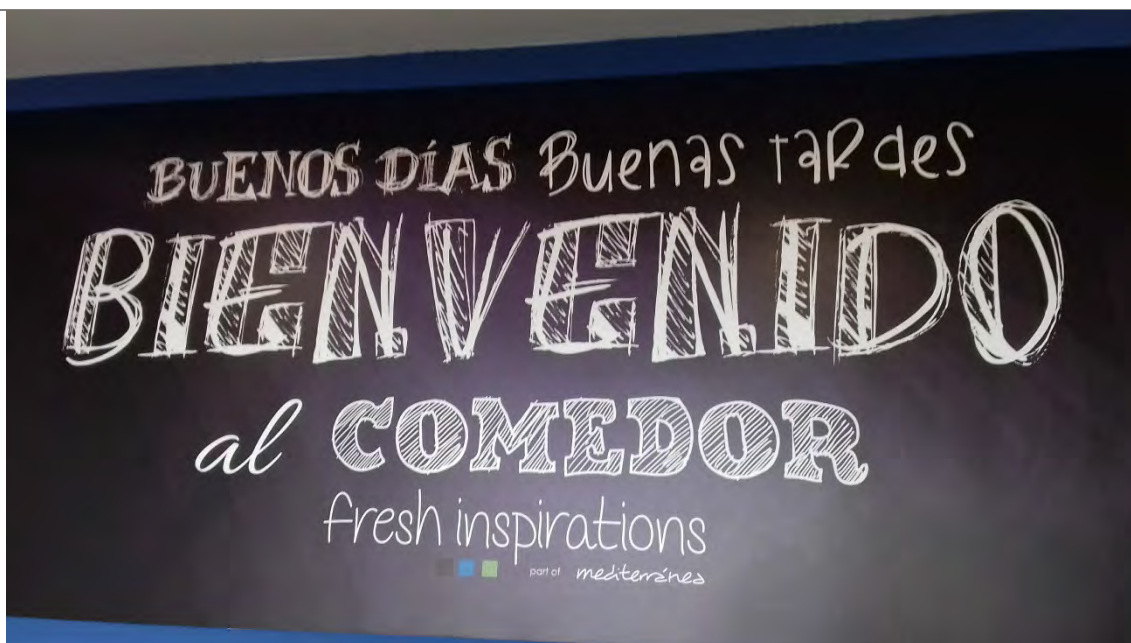 BUENOS DÍAS Buenas taRdes
BIENVENIDO
al COMEDOR
fresh inspirations
part of mediterránea